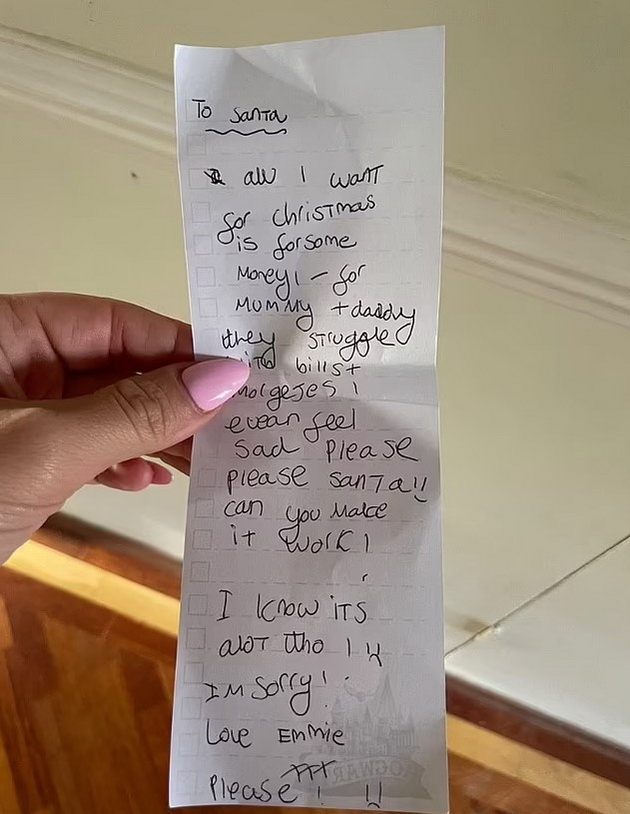 To Santa
all I want
for christmas
is forsome
Money! - for
Mummy + daddy
they struggle
with bills +
morgeses I
evean feel
sad please
please santa!!
can you Make
it work!
I know iTs
alot tho !
Im sorry!
Love Emmie
xxx
Please !
HOGWAR